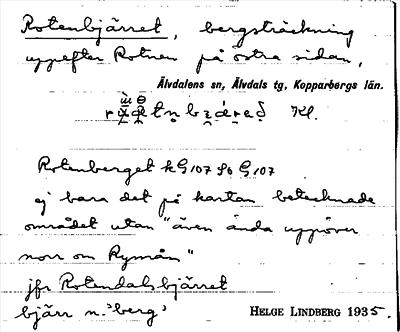 Rotenbjärret, bergsträckning
uppefter Rotnen på östra sidan,
Älvdalens sn, Älvdals tg, Kopparbergs län.
Kl.
Rotenberget kG107 So G107
ej bara det på kartan betecknade
området utan "även ända uppöver
norr om Rymån"
jfr Rotendalsbjärret
bjärr n. 'berg'
HELGE LINDBERG 1935.